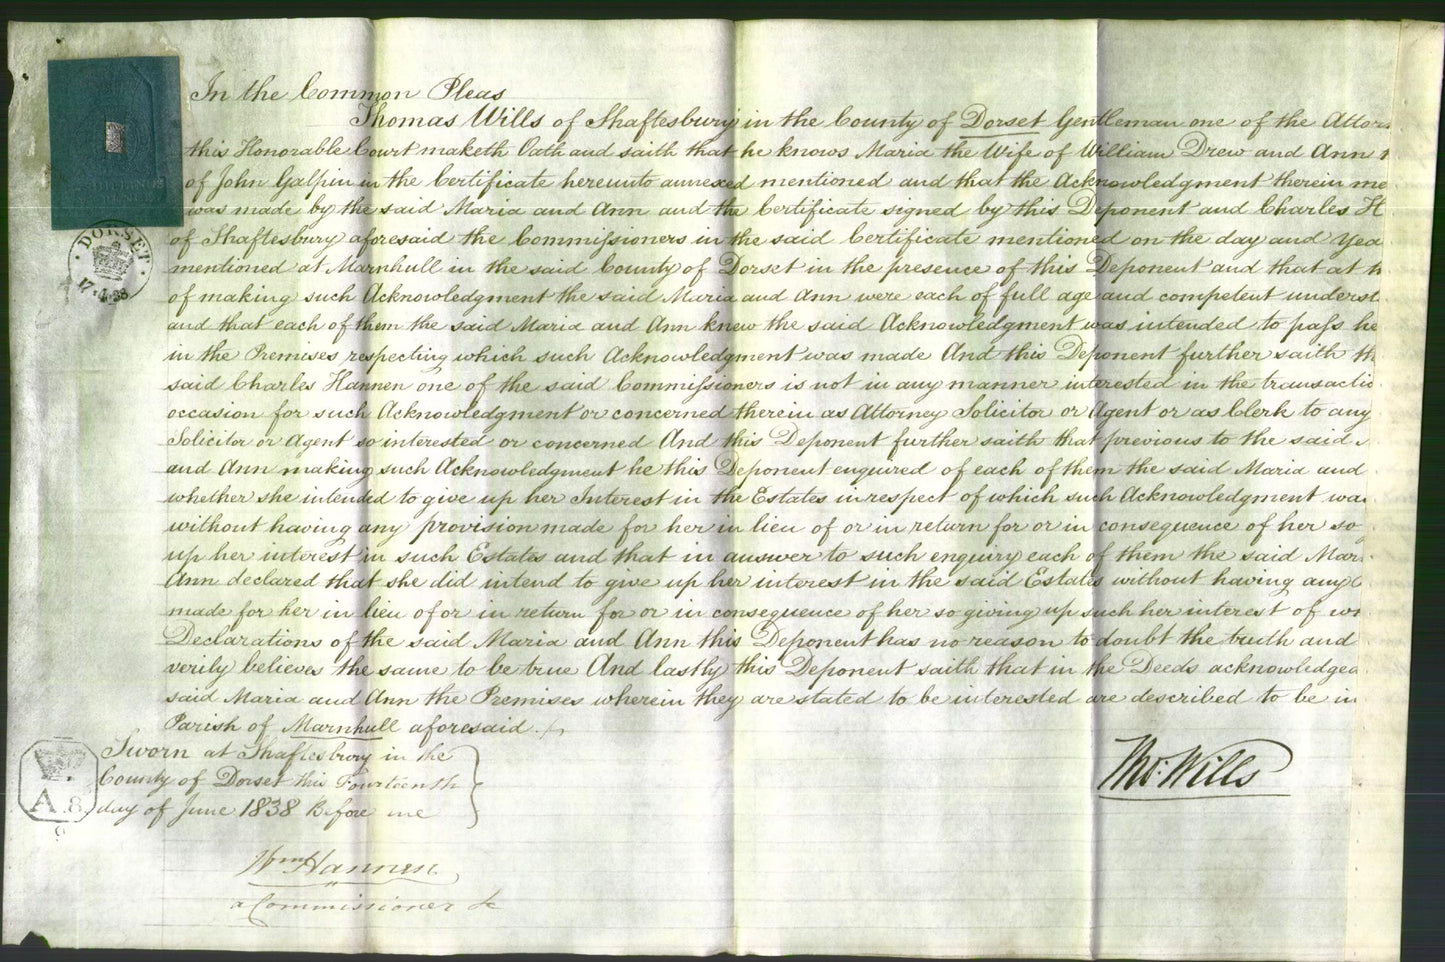 In the Common Pleas
Thomas Wills of Shaftesbury in the County of Dorset Gentleman one of the Attor
this Honorable Court maketh Oath and saith that he knows Maria the Wife of William Drew and Ann
of John Galpin in the Certificate hereunto annexed mentioned and that the Acknowledgment therein me
was made by the said Maria and Ann and the Certificate signed by this Deponent and Charles H
of Shaftesbury aforesaid the Commissioners in the said Certificate mentioned on the day and Yea
mentioned at Marnhull in the said County of Dorset in the presence of this Deponent and that at
of making such Acknowledgment the said Maria and Ann were each of full age and competent underst
and that each of them the said Maria and Ann knew the said Acknowledgment was intended to pass he
in the Premises respecting which such Acknowledgment was made And this Deponent further saith th
said Charles Hannen one of the said Commissioners is not in any manner interested in the transactio
occasion for such Acknowledgment or concerned therein as Attorney Solicitor or Agent or as Clerk to any
Solicitor or Agent so interested or concerned And this Deponent further saith that previous to the said
and Ann making such Acknowledgment he this Deponent enquired of each of them the said Maria and
whether she intended to give up her Interest in the Estates in respect of which such Acknowledgment was
without having any provision made for her in lieu of or in return for or in consequence of her so
up her interest in such Estates and that in answer to such enquiry each of them the said Mar
Ann declared that she did intend to give up her interest in the said Estates without having any
made for her in lieu of or in return for or in consequence of her so giving up such her interest of wh
Declarations of the said Maria and Ann this Deponent has no reason to doubt the truth and
verily believes the same to be true And lastly this Deponent saith that in the Deeds acknowledged
said Maria and Ann the Premises wherein they are stated to be interested are described to be in
Parish of Marnhull aforesaid.
Sworn at Shaftesbury in the
County of Dorset this Fourteenth
day of June 1838 Before me
Wm Hannen
a Commissioner &c
Thos: Wills
DORSET
17.4.38
A 8